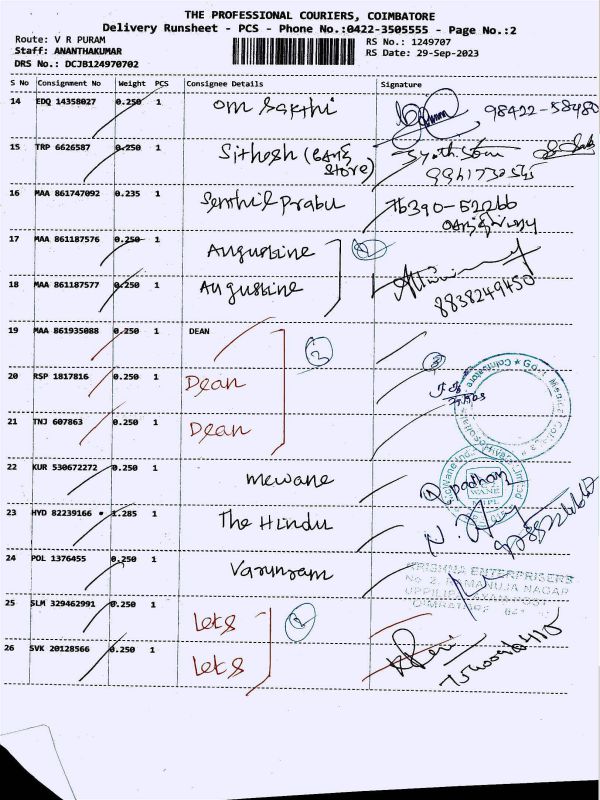 THE PROFESSIONAL COURIERS, COIMBATORE
Delivery Runsheet - PCS - Phone No.:0422-3505555 - Page No.:2
Route: V R PURAM
Staff: ANANTHAKUMAR
DRS No.: DCJB124970702
RS No.: 1249707
RS Date: 29-Sep-2023
S No Consignment No Weight PCS Consignee Details Signature
14 EDQ 14358027 0.250 1 Om Sakthi 98422-58480
15 TRP 6626587 0.250 1 Sithesh (
Store)
16 MAA 861747092 0.235 1 Senthil Prabu 76390-52266
17 MAA 861187576 0.250 1 Augustine 2
18 MAA 861187577 0.250 1 Augustine 8838249450
19 MAA 861935088 0.250 1 DEAN 3
20 RSP 1817816 0.250 1 Dean
21 TNJ 607863 0.250 1 Dean
Govt Medical College
Coimbatore
22 KUR 530672272 0.250 1 Mewane
WANE
23 HYD 82239166 1.285 1 The Hindu
24 POL 1376455 0.250 1 Varunram
KRISHNA ENTERPRISERS
No 2, RAMANUJA NAGAR
25 SLM 329462991 0.250 1 Lets 2
26 SVK 20128566 0.250 1 Lets